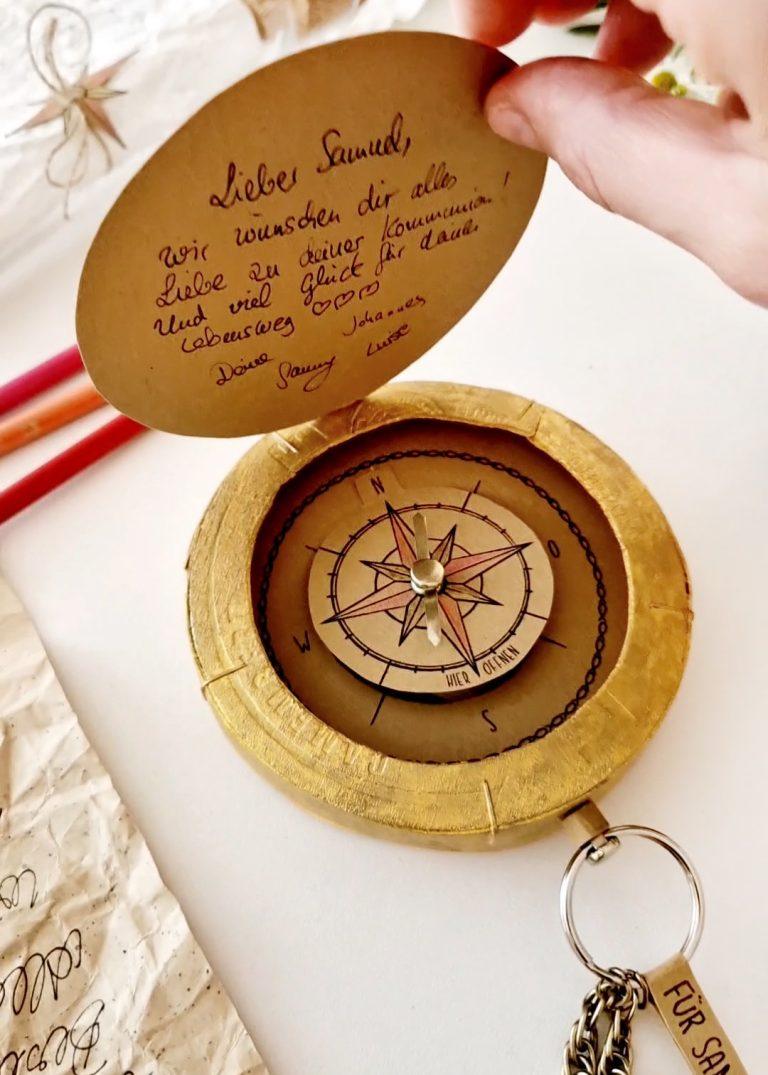 Lieber Samuel,
wir wünschen dir alles
Liebe zu deiner Kommunion!
Und viel Glück für deinen
Lebensweg ♡♡♡
Deine Johannes
Sanny Luise
N
O
W
S
HIER ÖFFNEN
FÜR SAM
alle